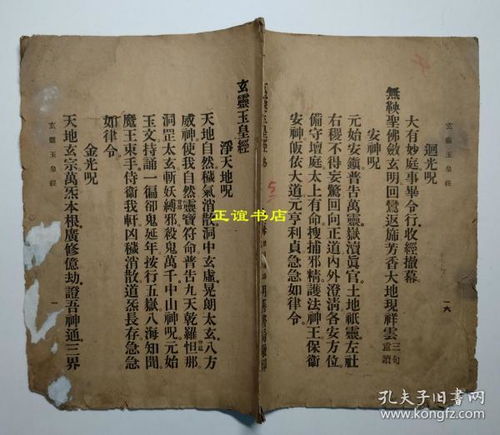 迴光呪
大有妙庭事畢令行收經撤幕
無鞅聖佛斂玄明回鸞返旆芳香大地現祥雲三句當讀
安神呪
元始安鎮普告萬靈嶽瀆眞官土地祇靈左社
右稷不得妄驚回向正道內外澄清各安方位
備守壇庭太上有命搜捕邪精護法神王保衛
安神皈依大道元亨利貞急急如律令
玄靈玉皇經
一六
玄靈玉皇經
淨天地呪
天地自然穢氣消散洞中玄虛晃朗太玄八方
威神使我自然靈寶符命普告九天乾羅怛那
洞罡太玄斬妖縛邪殺鬼萬千中山神呪元始
玉文持誦一徧卻鬼延年按行五嶽八海知聞
魔王束手侍衛我軒凶穢消散道炁長存急急
如律令
金光呪
天地玄宗萬炁本根廣修億劫證吾神通三界
玄靈玉皇經
一
正谊书店
孔夫子旧书网
kongfz.com